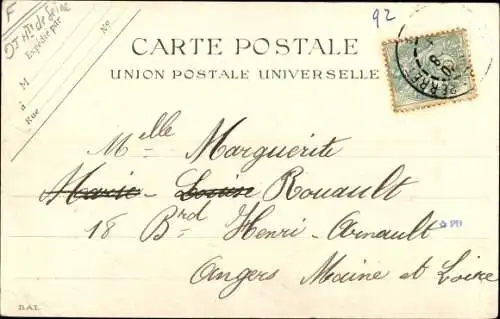 F
Dt Hts de Seine
92
Expédié par
M
à
Rue
No
CARTE POSTALE
UNION POSTALE UNIVERSELLE
PERRET
Melle Marguerite
Marie - Louise Rouault
18 Brd Henri - Arnault
Angers Maine et Loire
D.A.L.